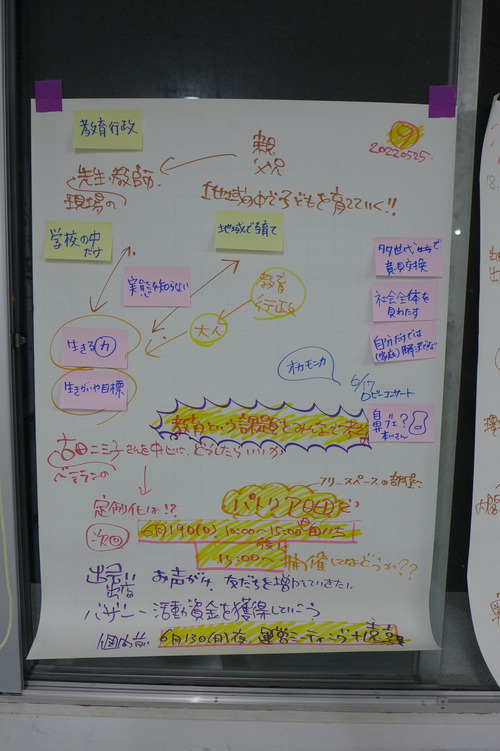 教育行政
⑨
20220525.
親
父兄
先生・教師.
現場の
地域の中で子どもを育てていく!!
学校の中
だけ
地域で育て
多世代
意見交換
実態を知らない
教育
行政
社会全体を
見わたす
大人
自分だけでは
(家庭)解決でない
生きる力
生きがいや目標
オカモニカ
6/17
ロビーコンサート
教育という課題をみんなで考
吉田二三子さんを中心に、どうしたらいいか
ベテランの
フリースペースの部屋
定例化は!?
パトリア日田で
次回
6月19日(日) 10:00~15:00
15:00~ 開催してはどうか??
出店
お声がけ 友だちを増やしていきたい
バザー 活動資金を獲得していこう
1週間前 6月13日(月)夜 運営ミーティング+